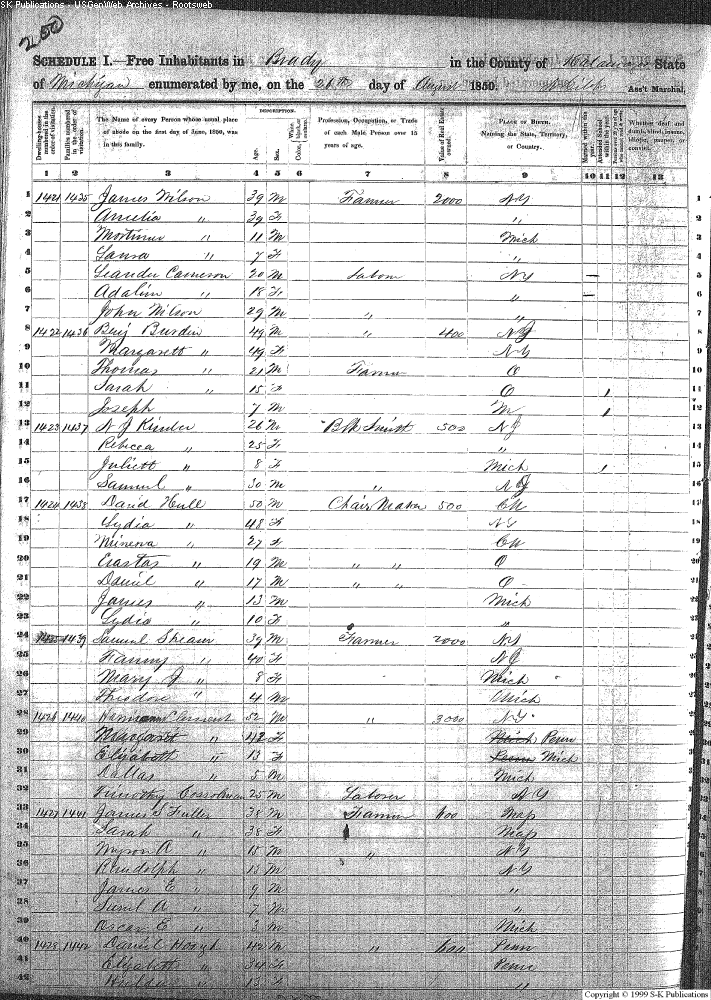 SK Publications - USGenWeb Archives - Rootsweb
200
SCHEDULE I.—Free Inhabitants in Brady in the County of Kalamazoo State
of Michigan enumerated by me, on the 26th day of August 1850. Ass't Marshal.
Dwelling-houses numbered in the order of visitation. Families numbered in the order of visitation. The Name of every Person whose usual place of abode on the first day of June, 1850, was in this family. DESCRIPTION. Age. Sex. Color, Profession, Occupation, or Trade of each Male Person over 15 years of age. Value of Real Estate owned. PLACE OF BIRTH. Naming the State, Territory, or Country. Married within the year. Attended School within the year. Whether deaf and dumb, blind, insane, idiotic, pauper, or convict.
1 2 3 4 5 6 7 8 9 10 11 12 13
1 1421 1435 James Wilson 39 M Farmer 2000 NY 1
2 Amelia " 39 F " 2
3 Mortimer " 11 M Mich 3
4 Laura " 7 F " 4
5 Leander Cameron 20 M Labor NY — 5
6 Adalin " 18 F " — 6
7 John Wilson 29 M " " 7
8 1422 1436 Benj Burdin 49 M " 400 NJ 8
9 Margarett " 49 F NY 9
10 Thomas " 21 M Farmer O 10
11 Sarah " 15 F O 1 11
12 Joseph 7 M M 1 12
13 1423 1437 N J Kimber 26 M Blk Smith 500 NJ 13
14 Rebecca " 25 F " 14
15 Juliett " 8 F Mich 1 15
16 Samuel " 30 M " NJ 16
17 1424 1438 David Hull 50 M Chair Maker 500 17
18 Lydia " 48 F NY 18
19 Minerva " 27 F 19
20 Erastas " 19 M " " O 20
21 Daniel " 17 M " " O 21
22 James " 13 M Mich 22
23 Lydia " 10 F " 23
24 1425 1439 Samuel Shearer 39 M Farmer 2000 NY 24
25 Fanny " 40 F NJ 25
26 Mary J " 8 F Mich 26
27 Theodore " 4 M Mich 27
28 1426 1440 52 M " 3000 NY 28
29 Margaret " 42 F Mich Penn 29
30 Elizabeth " 13 F Penn Mich 30
31 Dallas " 5 M Mich 31
32 Timothy 25 M Laborer NY 32
33 1427 1441 James S Fuller 38 M Farmer 600 Mass 33
34 Sarah " 38 F Mass 34
35 Myron A " 15 M " NY 35
36 Randolph " 13 M NY 36
37 James E " 9 M " 37
38 A " 7 " 38
39 Oscar E " 3 M Mich 39
40 1428 1442 Daniel 42 M " Penn 40
41 Elizabeth " 34 F Penn 41
42 13 F " 42
Copyright © 1999 S-K Publications